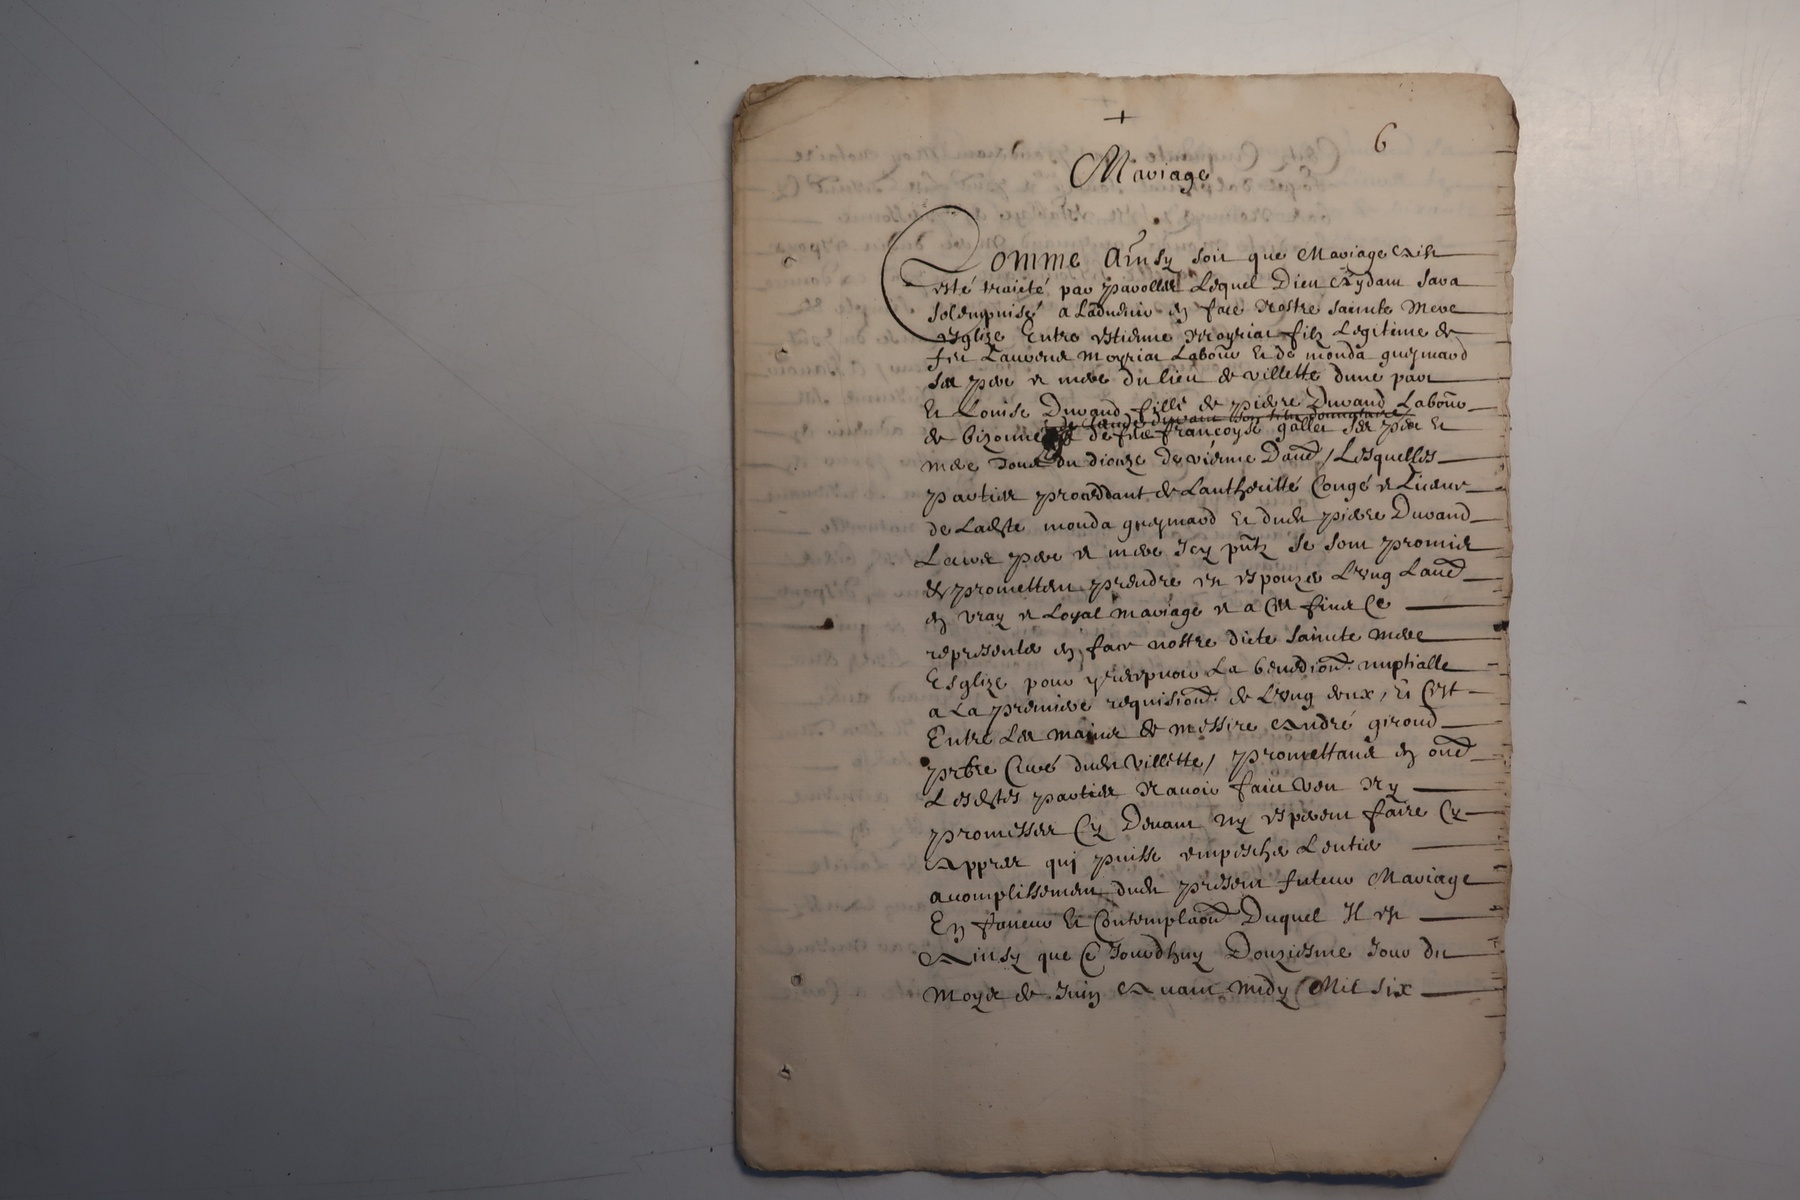 +
6
Mariage
Comme Ainsy soit que Mariage Aist
esté traicté par parolles Lequel Dieu Aydant sera
solempnisé a Ladvenir en face Nostre saincte Mere
esglize Entre estienne Moyriat filz Legitime de
feu Laurens moyriat Labour Et de monda gueymard
ses pere et mere du lieu de villette dune part
Et Louise Durand fille de pierre Durand Labour
de bizonnes de feue françoyse gallet ses pere Et
mere du diouze de vienne Daue / Lesquelles
parties proceddant de Lauthoritté Congé et Licence
de Ladicte monda gueymard Et dudit pierre Durand
Leurs pere et mere Icy pntz se sont promis
et promettent prendre et espouzer L'vng Laue
en vray et Loyal mariage et a Ces fins Ce
representer en face nostre dicte saincte mere
Esglize pour y recepvoir La benedion nuptialle
a La premiere requision de L'vng deux / Et C'est
Entre Les mains de messire André giroud
prbre Curé dudit villette / promettans en oue
Lesdictes parties N'avoir faict veu N'y
promesses Cy Devant ny esperent faire Cy
Appres qui puisse empescher L'entier
acomplissement dudit present futeur Mariage
En faveur Et Contemplaon Duquel Il est
Ainsy que Ce Jourdhuy Douziesme Jour du
moys de Juin Avant midy Mil six